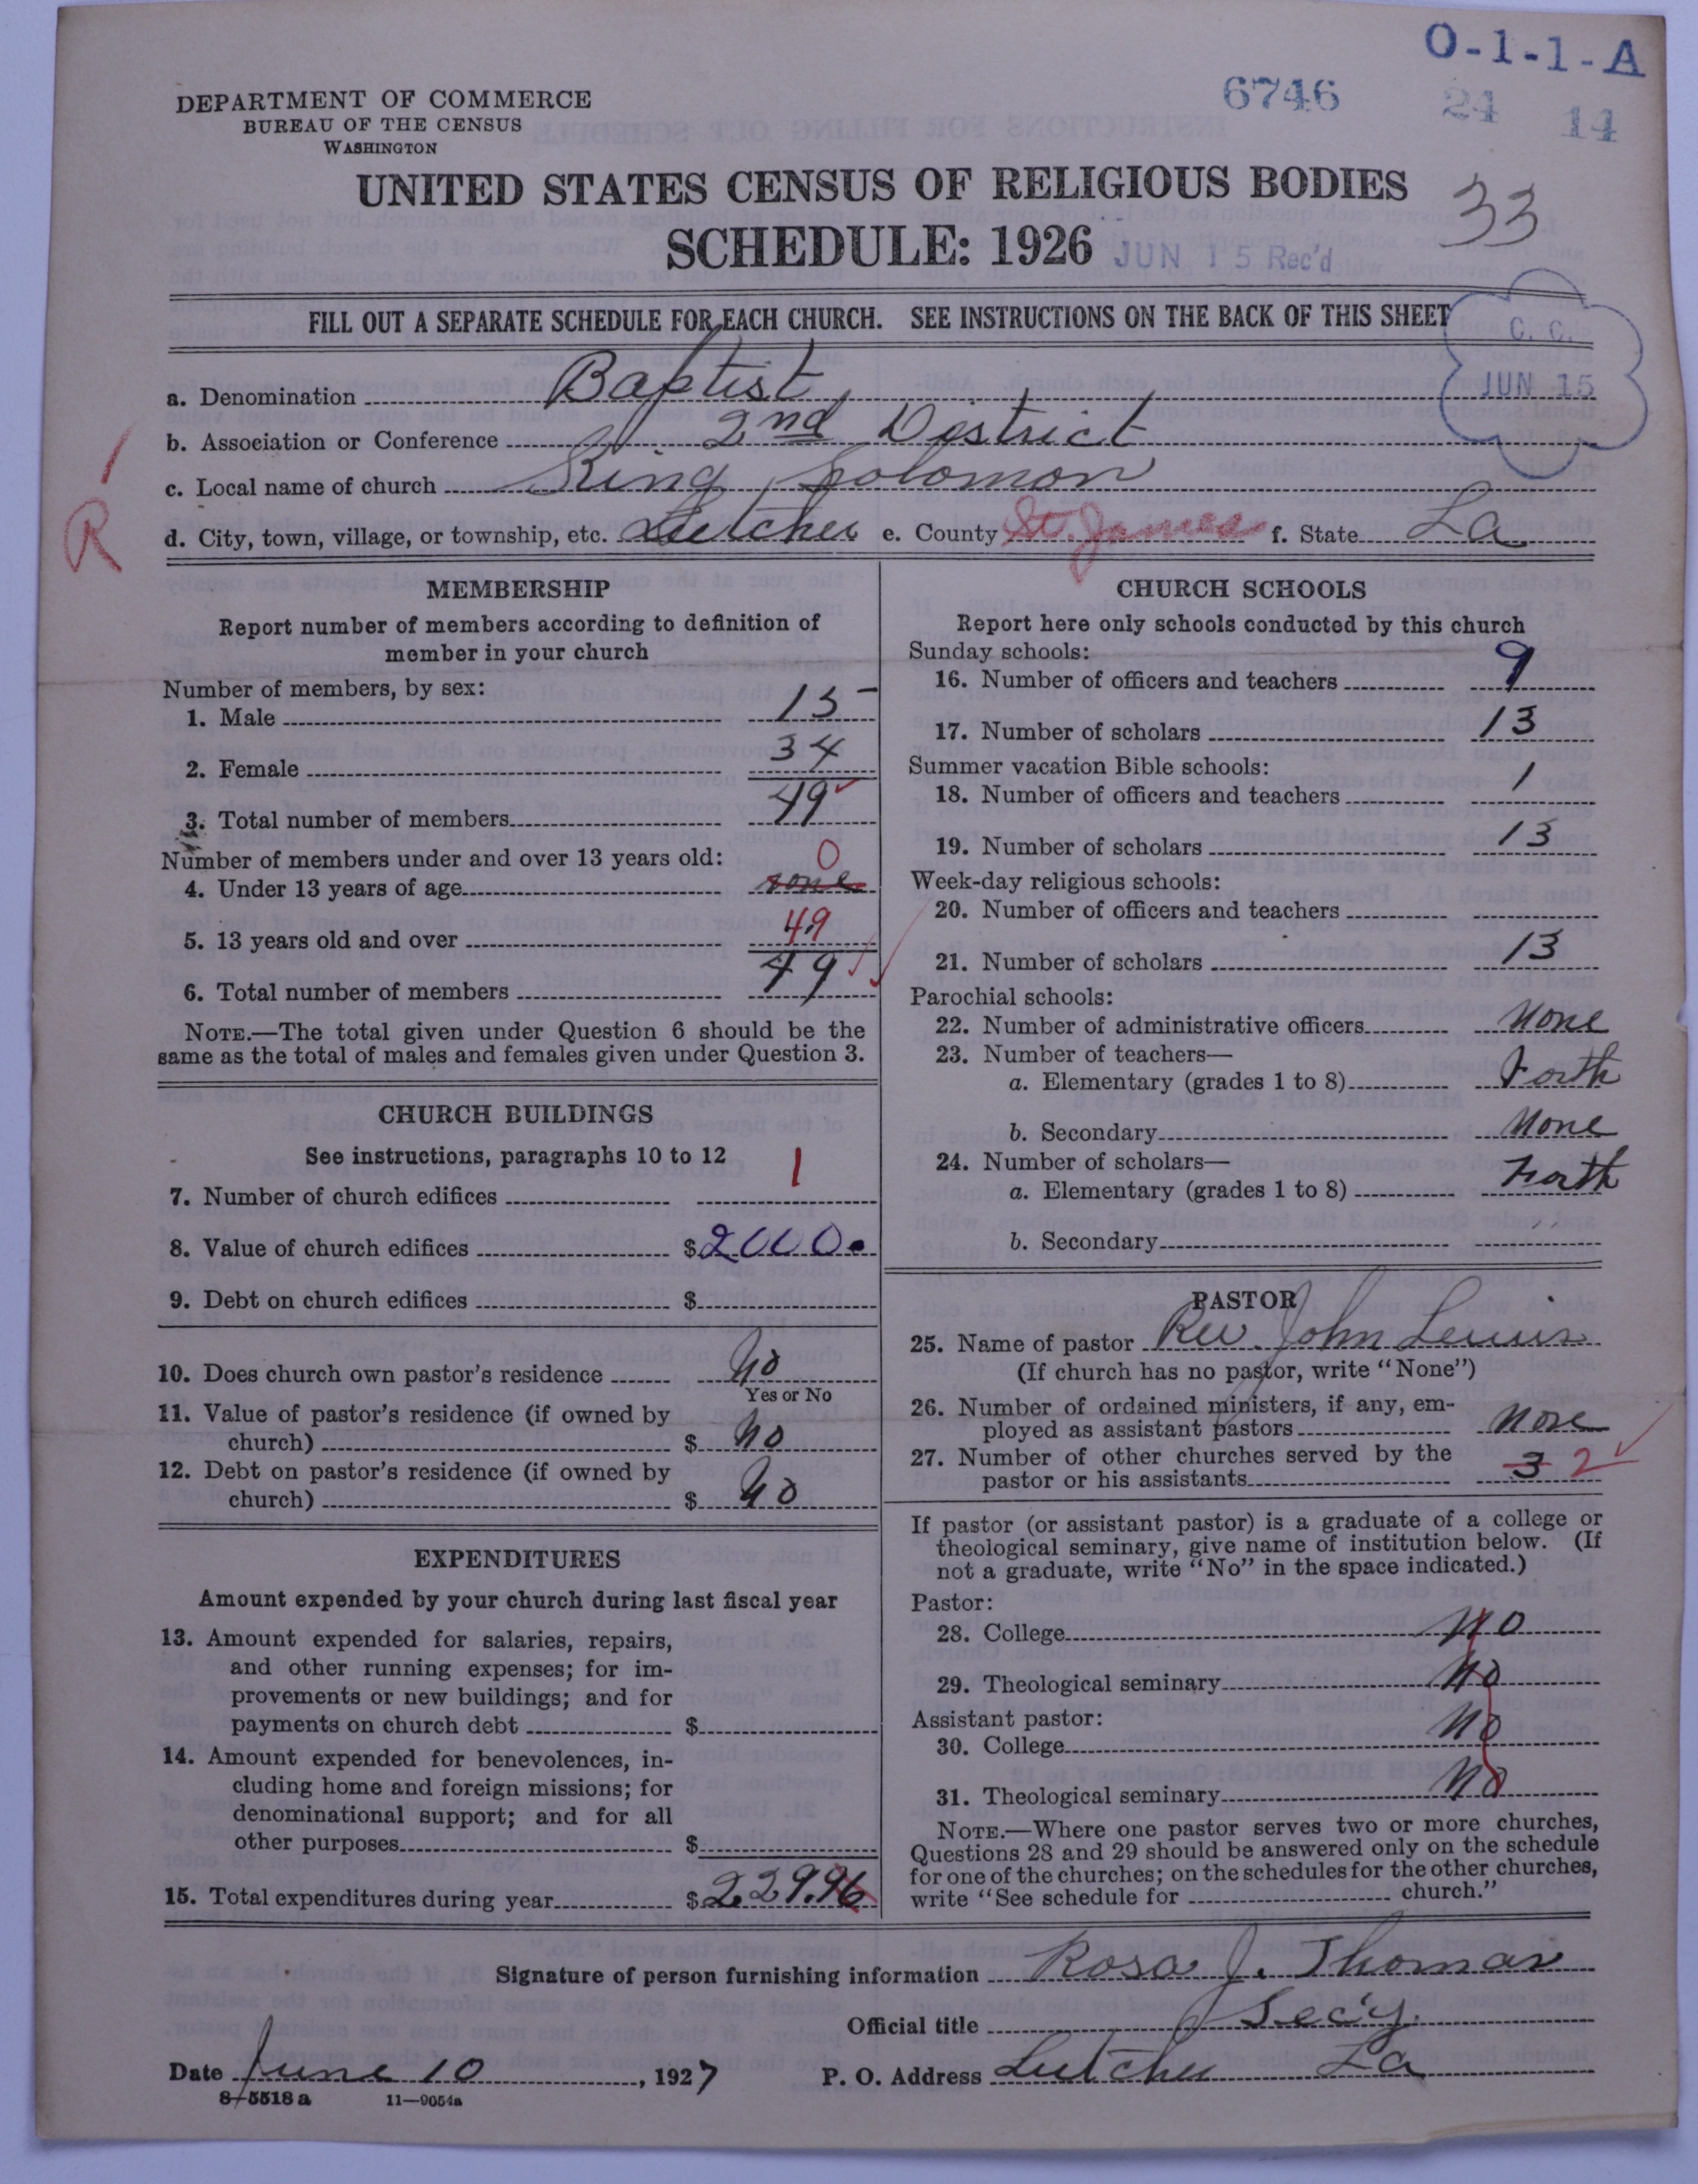 O-1-1-A
6746 24 14
DEPARTMENT OF COMMERCE
BUREAU OF THE CENSUS
WASHINGTON
UNITED STATES CENSUS OF RELIGIOUS BODIES
33
SCHEDULE: 1926 JUN 15 Rec'd
FILL OUT A SEPARATE SCHEDULE FOR EACH CHURCH. SEE INSTRUCTIONS ON THE BACK OF THIS SHEET
C. C.
JUN 15
a. Denomination Baptist
b. Association or Conference 2nd District
c. Local name of church King Solomon
R
d. City, town, village, or township, etc. Lutcher e. County St. James f. State La
MEMBERSHIP
Report number of members according to definition of
member in your church
Number of members, by sex:
1. Male 15
2. Female 34
3. Total number of members 49
Number of members under and over 13 years old:
4. Under 13 years of age none 0
5. 13 years old and over 49
6. Total number of members 49
NOTE.—The total given under Question 6 should be the
same as the total of males and females given under Question 3.
CHURCH BUILDINGS
See instructions, paragraphs 10 to 12
7. Number of church edifices 1
8. Value of church edifices $2000.
9. Debt on church edifices $
10. Does church own pastor's residence no
Yes or No
11. Value of pastor's residence (if owned by
church) $ no
12. Debt on pastor's residence (if owned by
church) $ no
EXPENDITURES
Amount expended by your church during last fiscal year
13. Amount expended for salaries, repairs,
and other running expenses; for im-
provements or new buildings; and for
payments on church debt $
14. Amount expended for benevolences, in-
cluding home and foreign missions; for
denominational support; and for all
other purposes $
15. Total expenditures during year $229.96
CHURCH SCHOOLS
Report here only schools conducted by this church
Sunday schools:
16. Number of officers and teachers 9
17. Number of scholars 13
Summer vacation Bible schools:
18. Number of officers and teachers 1
19. Number of scholars 13
Week-day religious schools:
20. Number of officers and teachers
21. Number of scholars 13
Parochial schools:
22. Number of administrative officers None
23. Number of teachers—
a. Elementary (grades 1 to 8) Forth
b. Secondary None
24. Number of scholars—
a. Elementary (grades 1 to 8) Forth
b. Secondary
PASTOR
25. Name of pastor Rev. John Lewis
(If church has no pastor, write "None")
26. Number of ordained ministers, if any, em-
ployed as assistant pastors None
27. Number of other churches served by the
pastor or his assistants 3 2
If pastor (or assistant pastor) is a graduate of a college or
theological seminary, give name of institution below. (If
not a graduate, write "No" in the space indicated.)
Pastor:
28. College no
29. Theological seminary no
Assistant pastor:
30. College no
31. Theological seminary no
NOTE.—Where one pastor serves two or more churches,
Questions 28 and 29 should be answered only on the schedule
for one of the churches; on the schedules for the other churches,
write "See schedule for church."
Signature of person furnishing information Rosa J. Thomas
Official title Sec'y.
Date June 10, 1927 P. O. Address Lutcher La
8-5518 a 11—9054a